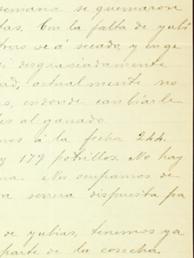 semana se quemaron
tas. Con la falta de yuli
se á secado, y en ge
i desgraciadamente
ad, actualmente no
s, en donde cambiarle
es al ganado.
mos á la fecha 244
y 179 potrillos. No hay
na. No ocupamos de
a serrea dispuesta pa
de yubias, tenemos ya
parte de la cosecha